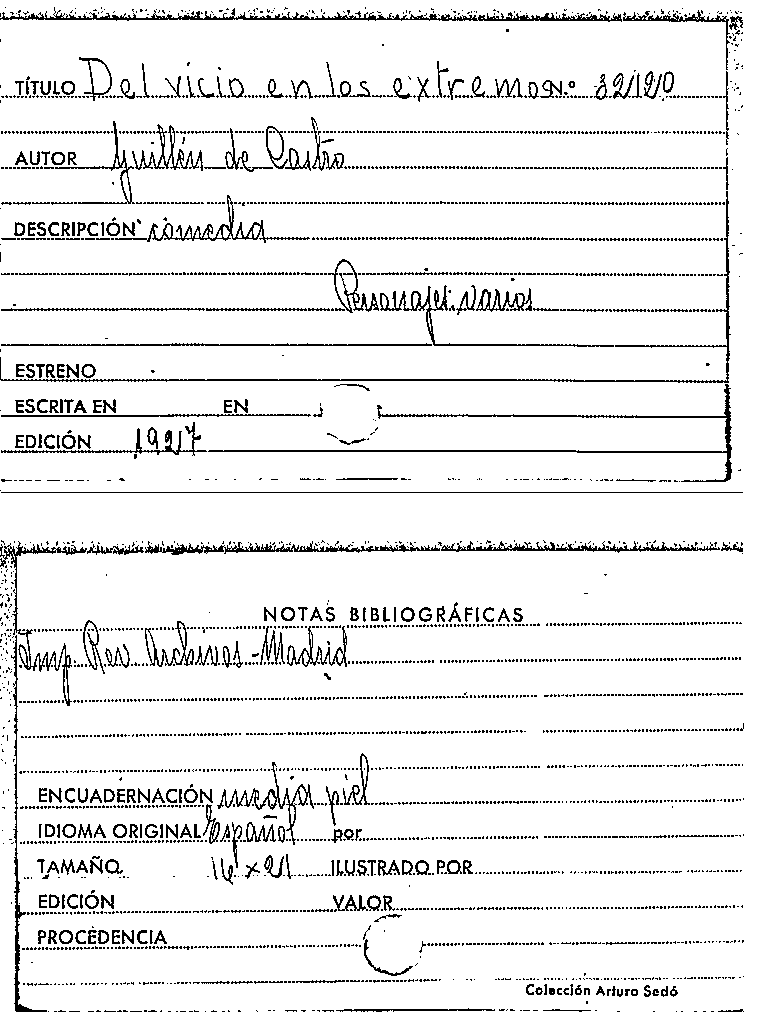 TÍTULO Del vicio en los extremos N.º 32120
AUTOR Guillén de Castro
DESCRIPCIÓN comedia
Personajes: varios
ESTRENO
ESCRITA EN EN
EDICIÓN 1927
NOTAS BIBLIOGRÁFICAS
Imp. Rev. Archivos - Madrid
ENCUADERNACIÓN media piel
IDIOMA ORIGINAL Español por
TAMAÑO 16 x 21 ILUSTRADO POR
EDICIÓN VALOR
PROCEDENCIA
Colección Arturo Sedó